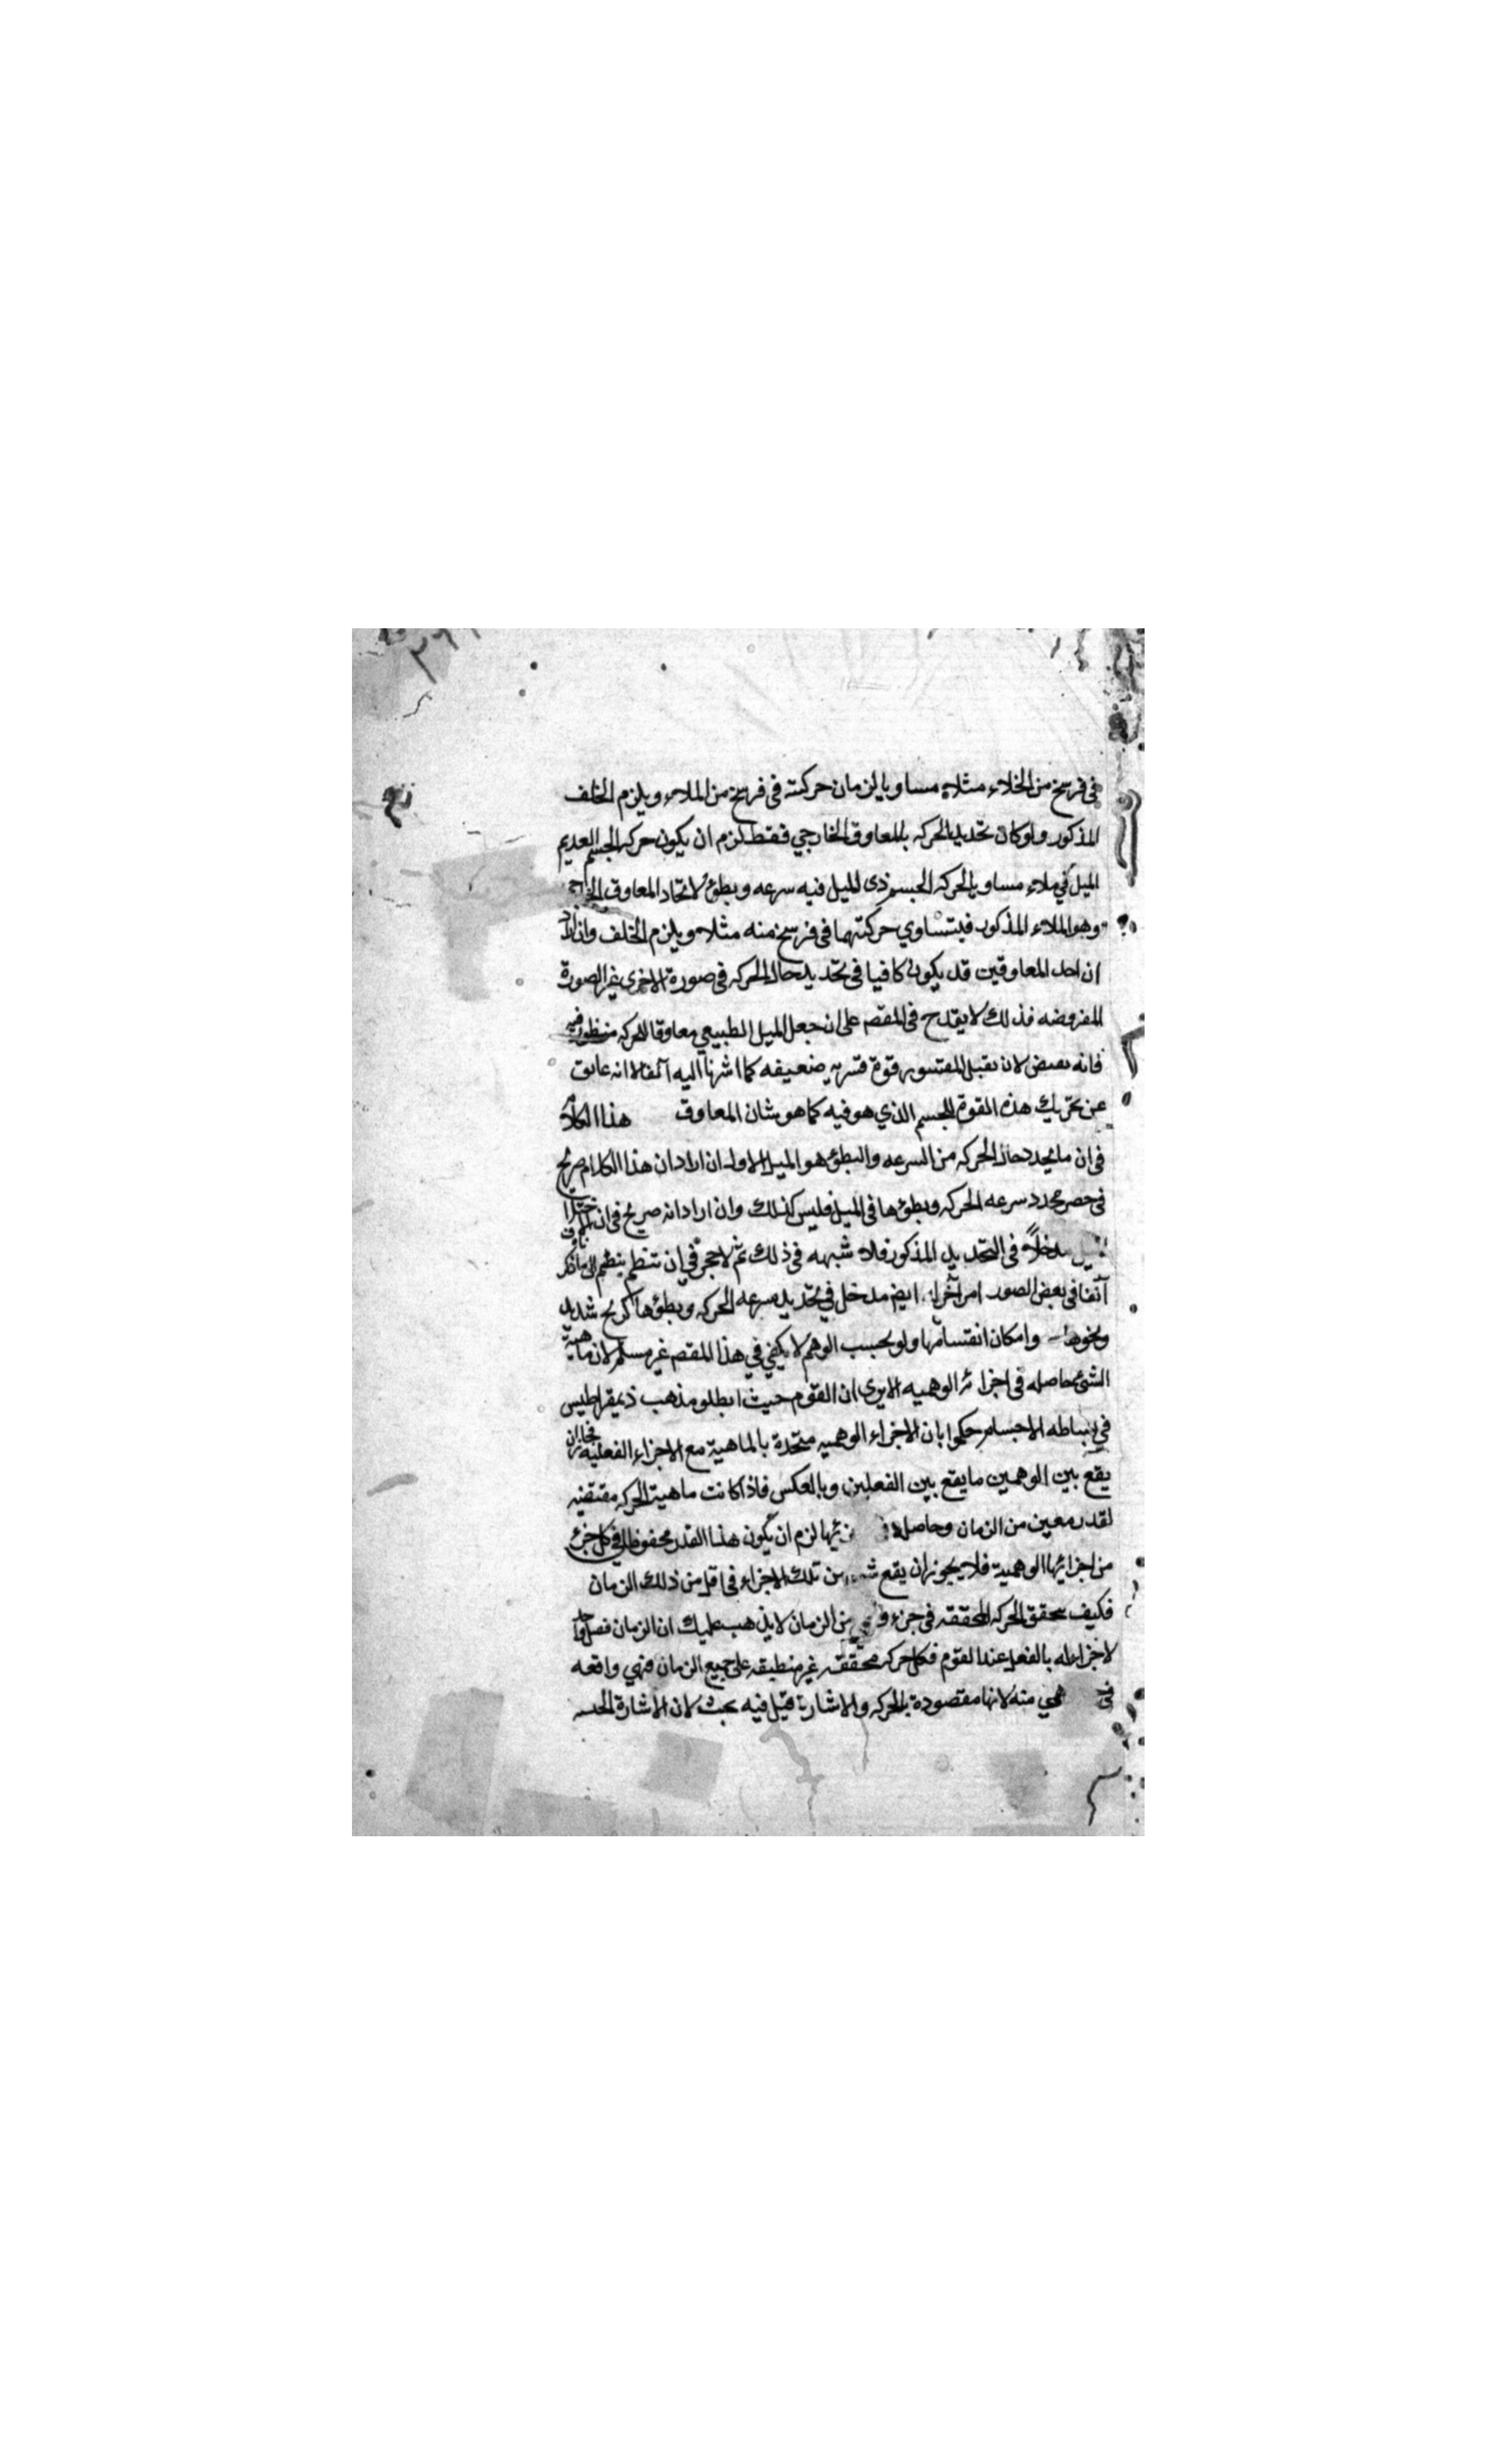 في فرسخ من الخلاء مثلا مساويا لزمان حركته في فرسخ من الملاء ويلزم الخلف
المذكور ولو كان تحديد الحركه بالمعاوق الخارجي فقط لزم ان يكون حركه الجسم العديم
الميل في ملاء مساويا لحركه الجسم ذى الميل فيه سرعه وبطؤ لاتحاد المعاوق الخارجي
وهو الملاء المذكور فيتساوي حركتهما فى فرسخ منه مثلا ويلزم الخلف وان اراد
ان احد المعاوقين قد يكون كافيا فى تحديد حال الحركه فى صورة الاخرى غير الصورة
المفروضه فذلك لا يقدح فى المقصم على ان جعل الميل الطبيعي معاوقا للحركه منظور فيه
فانه لان يقبل المقسور قوة قسريه ضعيفه كما اشرنا اليه آنفا لا انه عايق
عن تحريك هذه القوة للجسم الذي هو فيه كما هو شان المعاوق هذا الكلام
فى ان ما يحدد حال الحركه من السرعه والبطؤ هو الميل الاول ان اراد ان هذا الكلام صريح
فى حصر محدد سرعه الحركه وبطؤها فى الميل فليس كذلك وان اراد انه صريح فى ان
مدخلاً فى التحديد المذكور فلا شبهه فى ذلك ثم لا حجر في ان تنظم الى ما ذكر
آنفا فى بعض الصور امرا آخر له ايضم مدخل في تحديد سرعه الحركه وبطؤها كريح شديد
ونحوها وامكان انقسامها ولو بحسب الوهم لا يكفي في هذا المقصم غير مسلم لان ماهية
الشئ حاصله فى اجزائه الوهميه الا يرى ان القوم حيث ابطلو مذهب ذيمقراطيس
في بساطه الاجسام حكموا بان الاجزاء الوهميه متحدة بالماهية مع الاجزاء الفعليه فجاز ان
يقع بين الوهمين ما يقع بين الفعلين وبالعكس فاذا كانت ماهية الحركه مقتضيه
لقدر معين من الزمان وحاصله لزم ان يكون هذا القدر محفوظا في كل جزئ
من اجزائها الوهمية فلا يجوز ان يقع شئ من تلك الاجزاء فى اقل من ذلك الزمان
فكيف يتحقق الحركه المحققه فى جزء من الزمان لا يذهب عليك ان الزمان واحد
لا جزء له بالفعل عند القوم فكل حركه محققه غير منطبقه على جميع الزمان فهي واقعه
فى منه لانها مقصودة بالحركه والاشارة قيل فيه بحث لان الاشارة الحسيه